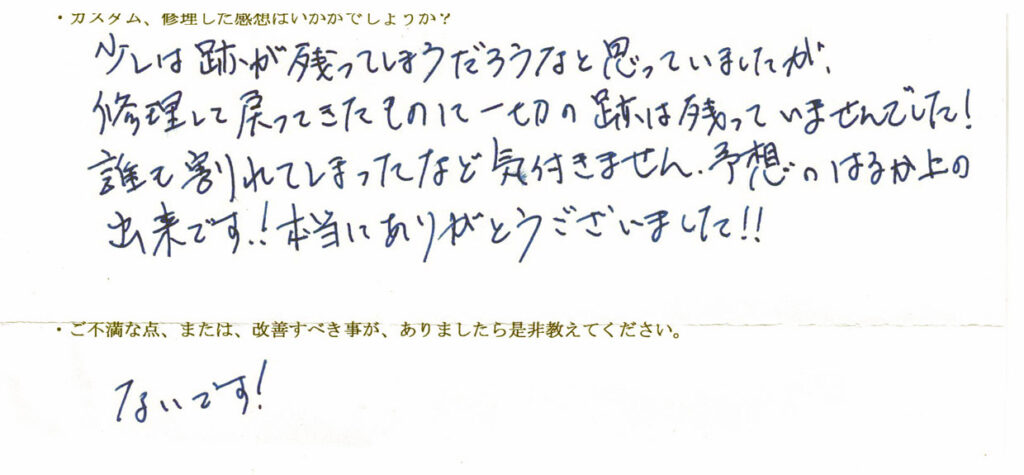 ・カスタム、修理した感想はいかがでしょうか？
少しは跡が残ってしまうだろうなと思っていましたが、
修理して戻ってきたものに一切の跡は残っていませんでした!
誰も割れてしまったなど気付きません。予想のはるか上の
出来です!!本当にありがとうございました!!
・ご不満な点、または、改善すべき事が、ありましたら是非教えてください。
ないです!